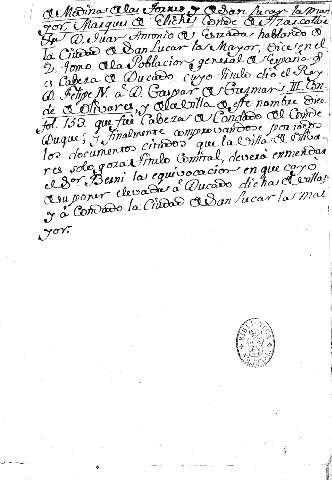 de Medina de las Torres y de San Lucar la Ma-
yor, Marques de Eliche, Conde de Azarcollar
D. Juan Antonio de Estrada hablando de
la Ciudad de San Lucar la Mayor, dice en el
2. tomo de la Poblacion general de España
es Cabeza de Ducado cuyo titulo dió el Rey
D. Felipe IV. à D. Gaspar de Guzman, III. Con-
de de Olivares, y de la villa de este nombre dice
fol. 153 que fue Cabeza de Condado del Conde
Duque; y finalmente comprovandose por
los documentos citados que la villa de Oliva-
res solo goza titulo Comital, deverá enmendar
el Sor. Berni las equivocacion en que cayó
de suponer elevadas à Ducado dicha villa
y à Condado la Ciudad de San Lucar la ma-
yor.